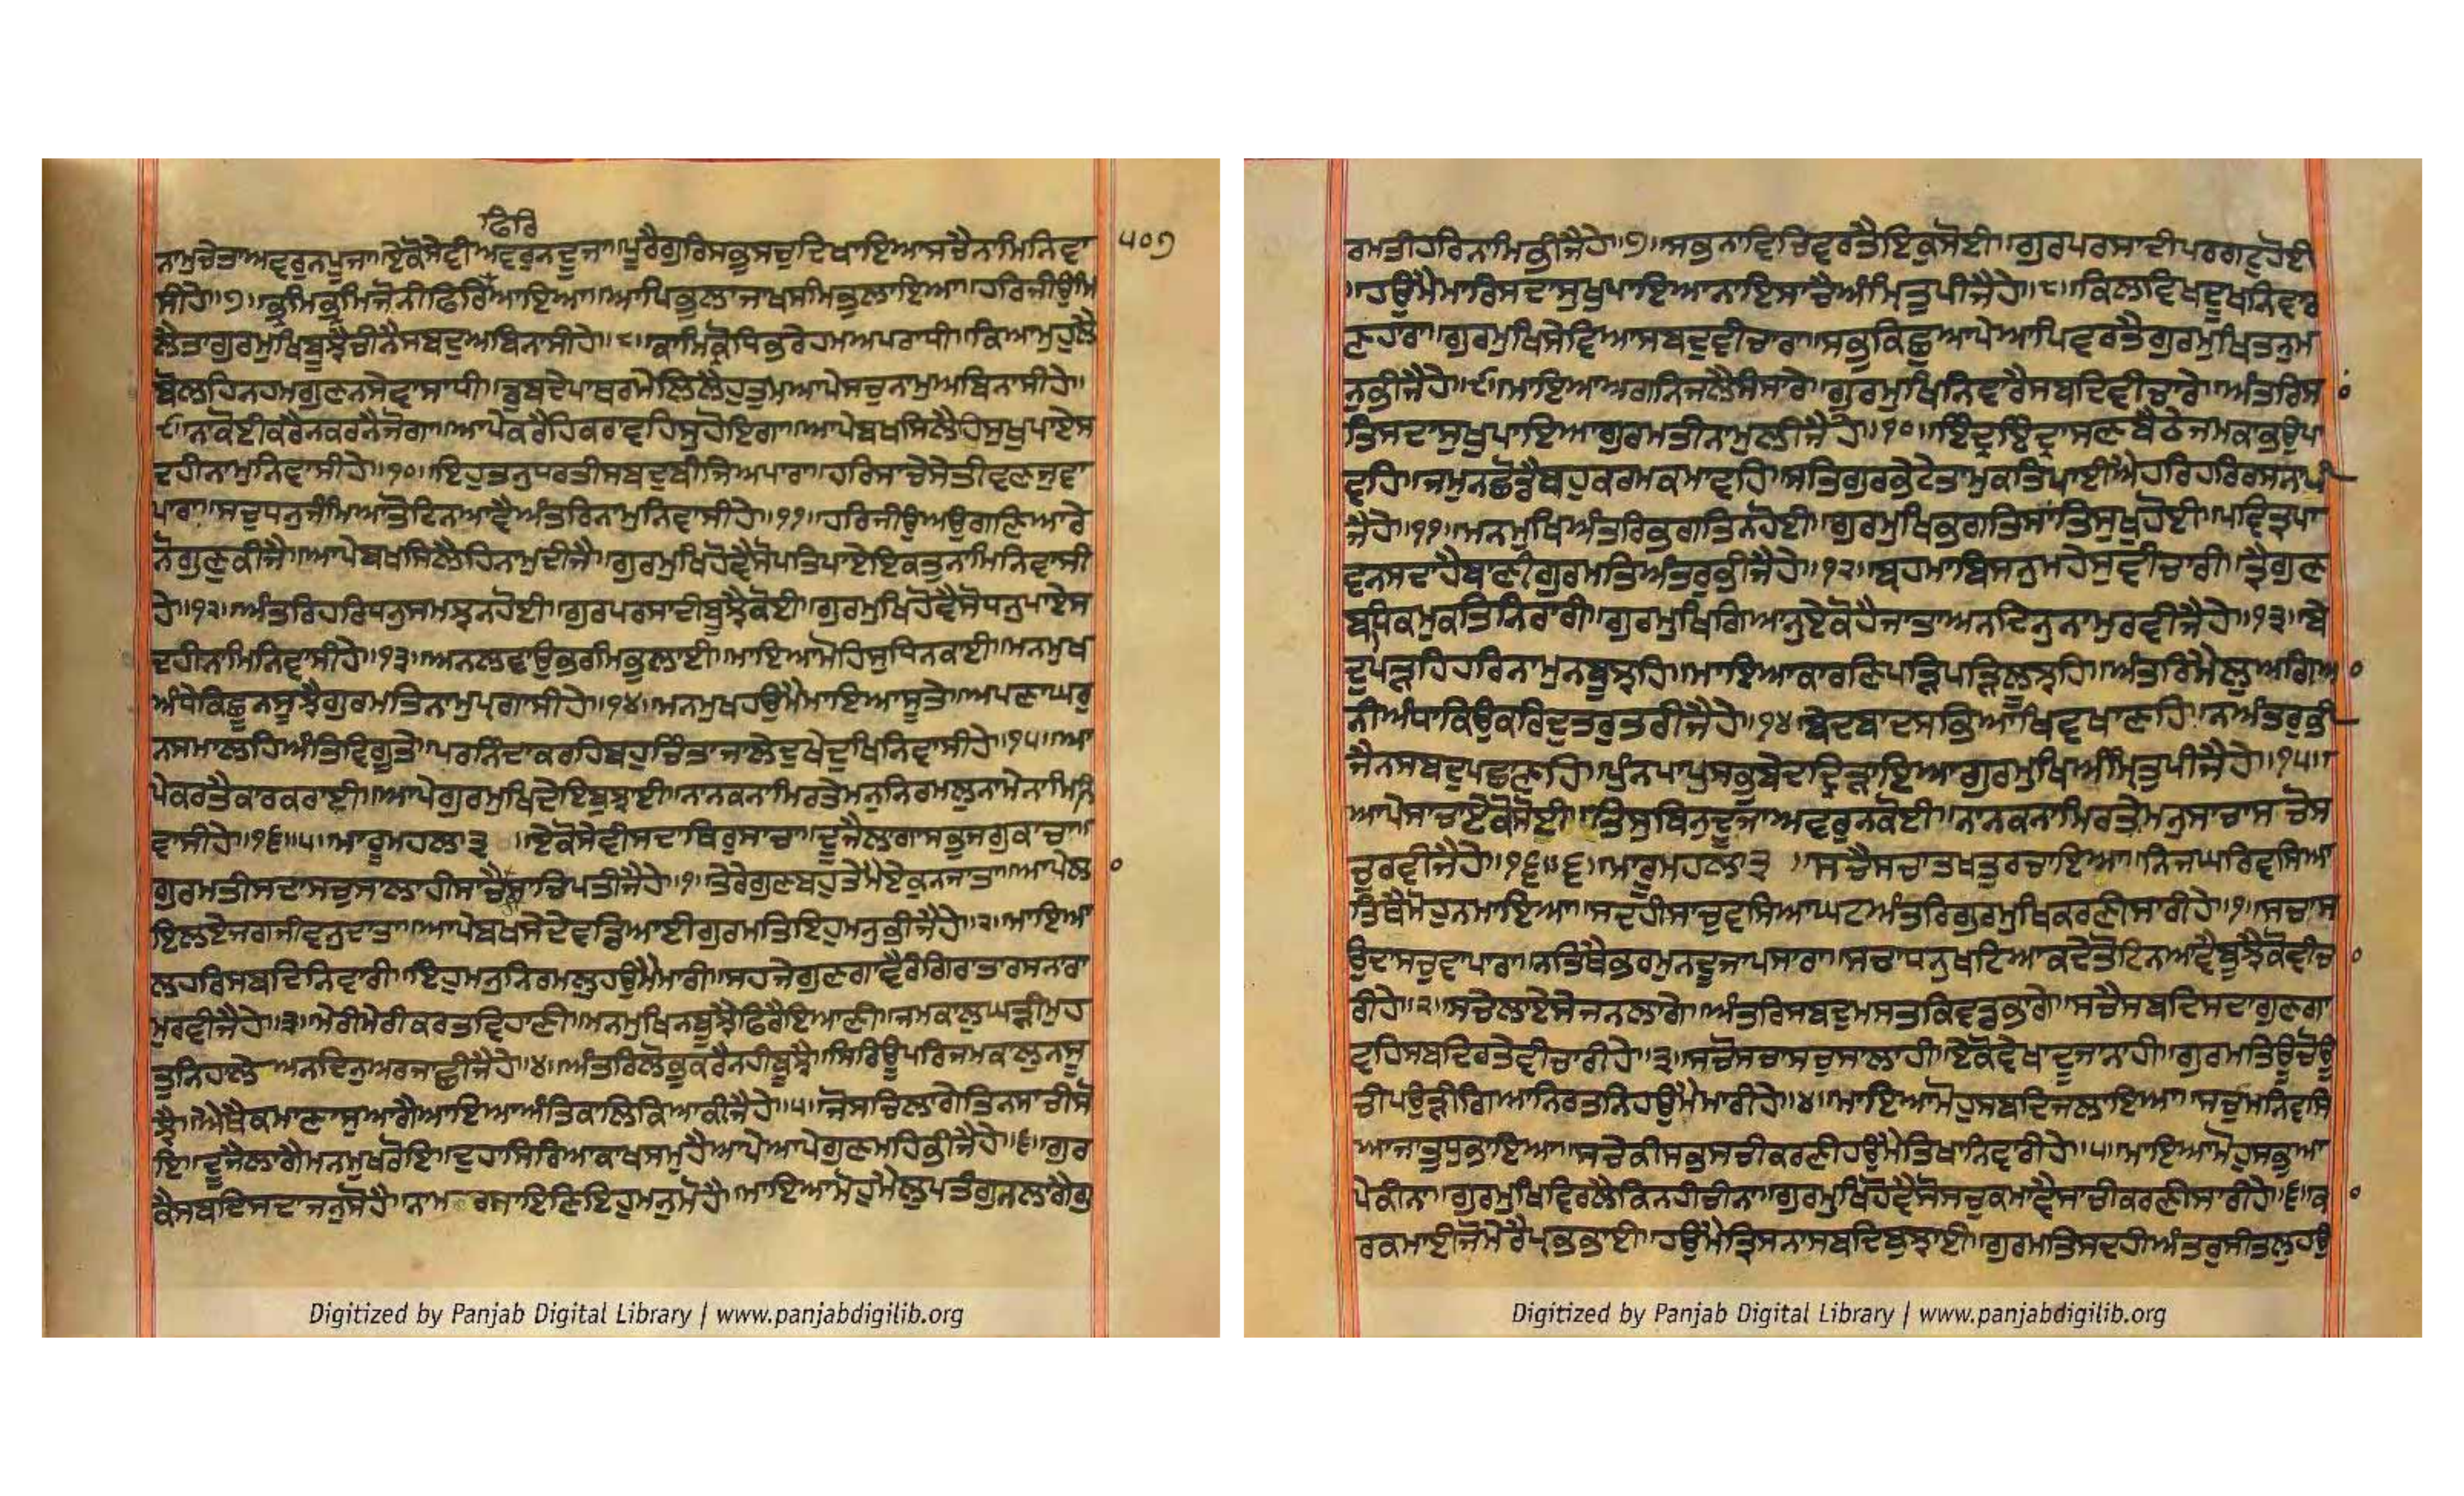 ਫਿਰਿ
ਨਾਮੁਚੇਤਾਅਵਰੁਨਪੂਜਾ॥ਏਕੋਸੇਵੀਅਵਰੁਨਦੂਜਾ॥ਪੂਰੈਗੁਰਿਸਭੁਸਚੁਦਿਖਾਇਆਸਚੈਨਾਮਿਨਿਵਾ
੫੦੭
ਸੀਹੇ॥੭॥ਭ੍ਰਮਿਭ੍ਰਮਿਜੋਨੀਫਿਰਿਆਇਆ॥ਆਪਿਭੂਲਾਜਾਖਸਮਿਭੁਲਾਇਆ॥ਹਰਿਜੀਉਮਿ
ਲੈਤਾਗੁਰਮੁਖਿਬੂਝੈਚੀਨੈਸਬਦੁਅਬਿਨਾਸੀਹੇ॥੮॥ਕਾਮਿਕ੍ਰੋਧਿਭਰੇਹਮਅਪਰਾਧੀ॥ਕਿਆਮੁਹੁਲੈ
ਬੋਲਹਿਨਹਮਗੁਣਨਸੇਵਾਸਾਧੀ॥ਡੁਬਦੇਪਾਥਰਮੇਲਿਲੈਹੁਤੁਮਆਪੇਸਚੁਨਾਮੁਅਬਿਨਾਸੀਹੇ॥
੯॥ਨਾਕੋਈਕਰੇਨਕਰਨੈਜੋਗਾ॥ਆਪੇਕਰੈਹਿਕਰਾਵਹਿਸੁਹੋਇਗਾ॥ਆਪੇਬਖਸਿਲੈਹਿਸੁਖੁਪਾਏਸ
ਦਹੀਨਾਮੁਨਿਵਾਸੀਹੇ॥੧੦॥ਇਹੁਤਨੁਧਰਤੀਸਬਦੁਬੀਜਿਅਪਾਰਾ॥ਹਰਿਸਾਚੇਸੇਤੀਵਣਜੁਵਾ
ਪਾਰਾ॥ਸਚੁਧਨੁਜੰਮਿਆਤੋਟਿਨਆਵੈਅੰਤਰਿਨਾਮੁਨਿਵਾਸੀਹੇ॥੧੧॥ਹਰਿਜੀਉਅਉਗਣਿਆਰੇ
ਨੋਗੁਣੁਕੀਜੈ॥ਆਪੇਬਖਸਿਲੈਹਿਨਾਮੁਦੀਜੈ॥ਗੁਰਮੁਖਿਹੋਵੈਸੋਪਤਿਪਾਏਇਕਤੁਨਾਮਿਨਿਵਾਸੀ
ਹੇ॥੧੨॥ਅੰਤਰਿਹਰਿਧਨੁਸਮਝਨਹੋਈ॥ਗੁਰਪਰਸਾਦੀਬੂਝੈਕੋਈ॥ਗੁਰਮੁਖਿਹੋਵੈਸੋਧਨੁਪਾਏਸ
ਦਹੀਨਾਮਿਨਿਵਾਸੀਹੇ॥੧੩॥ਅਨਲਵਾਉਭਰਮਿਭੁਲਾਈ॥ਮਾਇਆਮੋਹਿਸੁਧਿਨਕਾਈ॥ਮਨਮੁਖ
ਅੰਧੇਕਿਛੂਨਸੂਝੈਗੁਰਮਤਿਨਾਮੁਪ੍ਰਗਾਸੀਹੇ॥੧੪॥ਮਨਮੁਖਹਉਮੈਮਾਇਆਸੂਤੇ॥ਅਪਣਾਘਰੁ
ਨਸਮਾਲਹਿਅੰਤਿਵਿਗੂਤੇ॥ਪਰਨਿੰਦਾਕਰਹਿਬਹੁਚਿੰਤਾਜਾਲੇਦੁਖੇਦੁਖਿਨਿਵਾਸੀਹੇ॥੧੫॥ਆ
ਪੇਕਰਤੈਕਾਰਕਰਾਈ॥ਆਪੇਗੁਰਮੁਖਿਦੇਇਬੁਝਾਈ॥ਨਾਨਕਨਾਮਿਰਤੇਮਨੁਨਿਰਮਲੁਨਾਮੇਨਾਮਿਨਿ
ਵਾਸੀਹੇ॥੧੬॥੫॥ਮਾਰੂਮਹਲਾ੩ ॥ਏਕੋਸੇਵੀਸਦਾਥਿਰੁਸਾਚਾ॥ਦੂਜੈਲਾਗਾਸਭੁਜਗੁਕਾਚਾ॥
ਗੁਰਮਤੀਸਦਾਸਚੁਸਾਲਾਹੀਸਾਚੈਸਾਚਿਪਤੀਜੈਹੇ॥੧॥ਤੇਰੇਗੁਣਬਹੁਤੇਮੈਏਕੁਨਜਾਤਾ॥ਆਪੇਲਾ
ਇਲਏਜਗਜੀਵਨੁਦਾਤਾ॥ਆਪੇਬਖਸੇਦੇਵਡਿਆਈਗੁਰਮਤਿਇਹੁਮਨੁਭੀਜੈਹੇ॥੨॥ਮਾਇਆ
ਲਹਰਿਸਬਦਿਨਿਵਾਰੀ॥ਇਹੁਮਨੁਨਿਰਮਲੁਹਉਮੈਮਾਰੀ॥ਸਹਜੇਗੁਣਗਾਵੈਰੰਗਿਰਾਤਾਰਸਨਾਰਾ
ਮੁਰਵੀਜੈਹੇ॥੩॥ਮੇਰੀਮੇਰੀਕਰਤਵਿਹਾਣੀ॥ਮਨਮੁਖਿਨਬੂਝੈਫਿਰੈਇਆਣੀ॥ਜਮਕਾਲੁਘੜੀਮੁਹ
ਤੁਨਿਹਾਲੇ ਅਨਦਿਨੁਆਰਜਾਛੀਜੈਹੇ॥੪॥ਅੰਤਰਿਲੋਭੁਕਰੈਨਹੀਬੂਝੈ॥ਸਿਰਿਊਪਰਿਜਮਕਾਲੁਨਸੂ
ਝੈ॥ਐਥੈਕਮਾਣਾਸੁਆਗੈਆਇਆਅੰਤਿਕਾਲਿਕਿਆਕੀਜੈਹੇ॥੫॥ਜੋਸਚਿਲਾਗੇਤਿਨਸਾਚੀਸੋ
ਇ॥ਦੂਜੈਲਾਗੈਮਨਮੁਖਰੋਇ॥ਦੁਹਾਸਿਰਿਆਕਾਖਸਮੁਹੈਆਪੇਆਪੇਗੁਣਮਹਿਭੀਜੈਹੇ॥੬॥ਗੁਰ
ਕੈਸਬਦਿਸਦਾਜਨੁਸੋਹੈ॥ਨਾਮ ਰਸਾਇਣਿਇਹੁਮਨੁਮੋਹੈ॥ਮਾਇਆਮੋਹੁਮੈਲੁਪਤੰਗੁਨਲਾਗੈਗੁ
ਰਮਤੀਹਰਿਨਾਮਿਭੀਜੈਹੇ॥੭॥ਸਭਨਾਵਿਚਿਵਰਤੈਇਕੁਸੋਈ॥ਗੁਰਪਰਸਾਦੀਪਰਗਟੁਹੋਈ
॥ਹਉਮੈਮਾਰਿਸਦਾਸੁਖੁਪਾਇਆਨਾਇਸਾਚੈਅੰਮ੍ਰਿਤੁਪੀਜੈਹੇ॥੮॥ਕਿਲਵਿਖਦੂਖਨਿਵਾਰ
ਣਹਾਰਾ॥ਗੁਰਮੁਖਿਸੇਵਿਆਸਬਦੁਵੀਚਾਰਾ॥ਸਭੁਕਿਛੁਆਪੇਆਪਿਵਰਤੈਗੁਰਮੁਖਿਤਨੁਮ
ਨੁਭੀਜੈਹੇ॥੯॥ਮਾਇਆਅਗਨਿਜਲੈਸੰਸਾਰੇ॥ਗੁਰਮੁਖਿਨਿਵਾਰੈਸਬਦਿਵੀਚਾਰੇ॥ਅੰਤਰਿਸ
ਤਿਸਦਾਸੁਖੁਪਾਇਆਗੁਰਮਤੀਨਾਮੁਲੀਜੈਹੇ॥੧੦॥ਇੰਦ੍ਰਇੰਦ੍ਰਾਸਣਬੈਠੇਜਮਕਾਭਉਪਾ
ਵਹਿ॥ਜਮੁਨਛੋਡੈਬਹੁਕਰਮਕਮਾਵਹਿ॥ਸਤਿਗੁਰਭੇਟੈਤਾਮੁਕਤਿਪਾਈਐਹਰਿਹਰਿਰਸਨਾਪੀ
ਜੈਹੇ॥੧੧॥ਮਨਮੁਖਿਅੰਤਰਿਭਗਤਿਨਹੋਈ॥ਗੁਰਮੁਖਿਭਗਤਿਸਾਂਤਿਸੁਖੁਹੋਈ॥ਪਵਿਤ੍ਰਪਾ
ਵਨਸਦਾਹੈਬਾਣੀਗੁਰਮਤਿਅੰਤਰੁਭੀਜੈਹੇ॥੧੨॥ਬ੍ਰਹਮਾਬਿਸਨੁਮਹੇਸੁਵੀਚਾਰੀ॥ਤ੍ਰੈਗੁਣ
ਬਧਕਮੁਕਤਿਨਿਰਾਰੀ॥ਗੁਰਮੁਖਿਗਿਆਨੁਏਕੋਹੈਜਾਤਾਅਨਦਿਨੁਨਾਮੁਰਵੀਜੈਹੇ॥੧੩॥ਬੇ
ਦਪੜਹਿਹਰਿਨਾਮੁਨਬੂਝਹਿ॥ਮਾਇਆਕਾਰਣਿਪੜਿਪੜਿਲੂਝਹਿ॥ਅੰਤਰਿਮੈਲੁਅਗਿਆ
ਨੀਅੰਧਾਕਿਉਕਰਿਦੁਤਰੁਤਰੀਜੈਹੇ॥੧੪॥ਬੇਦਬਾਦਸਭਿਆਖਿਵਖਾਣਹਿ॥ਨਅੰਤਰੁਭੀ
ਜੈਨਸਬਦੁਪਛਾਣਹਿ॥ਪੁੰਨੁਪਾਪੁਸਭੁਬੇਦਿਦ੍ਰਿੜਾਇਆਗੁਰਮੁਖਿਅੰਮ੍ਰਿਤੁਪੀਜੈਹੇ॥੧੫॥
ਆਪੇਸਾਚਾਏਕੋਸੋਈ॥ਤਿਸੁਬਿਨੁਦੂਜਾਅਵਰੁਨਕੋਈ॥ਨਾਨਕਨਾਮਿਰਤੇਮਨੁਸਾਚਾਸਚੋਸ
ਚੁਰਵੀਜੈਹੇ॥੧੬॥੬॥ਮਾਰੂਮਹਲਾ੩ ॥ਸਚੈਸਚਾਤਖਤੁਰਚਾਇਆ॥ਨਿਜਘਰਿਵਸਿਆ
ਤਿਥੈਮੋਹੁਨਮਾਇਆ॥ਸਦਹੀਸਾਚੁਵਸਿਆਘਟਅੰਤਰਿਗੁਰਮੁਖਿਕਰਣੀਸਾਰੀਹੇ॥੧॥ਸਚਾਸ
ਉਦਾਸਚੁਵਾਪਾਰਾ॥ਨਤਿਥੈਭਰਮੁਨਦੂਜਾਪਸਾਰਾ॥ਸਚਾਧਨੁਖਟਿਆਕਦੇਤੋਟਿਨਆਵੈਬੂਝੈਕੋਵੀਚਾ
ਰੀਹੇ॥੨॥ਸਚੈਲਾਏਸੇਜਨਲਾਗੇ॥ਅੰਤਰਿਸਬਦੁਮਸਤਕਿਵਡਭਾਗੇ॥ਸਚੈਸਬਦਿਸਦਾਗੁਣਗਾ
ਵਹਿਸਬਦਿਰਤੇਵੀਚਾਰੀਹੇ॥੩॥ਸਚੋਸਚਾਸਚੁਸਾਲਾਹੀ॥ਏਕੋਵੇਖਾਦੂਜਾਨਾਹੀ॥ਗੁਰਮਤਿਊਚੋਊ
ਚੀਪਉੜੀਗਿਆਨਿਰਤਨਿਹਉਮੈਮਾਰੀਹੇ॥੪॥ਮਾਇਆਮੋਹੁਸਬਦਿਜਲਾਇਆ॥ਸਚੁਮਨਿਵਸਿ
ਆਜਾਤੁਧੁਭਾਇਆ॥ਸਚੇਕੀਸਭਸਚੀਕਰਣੀਹਉਮੈਤਿਖਾਨਿਵਾਰੀਹੇ॥੫॥ਮਾਇਆਮੋਹੁਸਭੁਆ
ਪੇਕੀਨਾ॥ਗੁਰਮੁਖਿਵਿਰਲੈਕਿਨਹੀਚੀਨਾ॥ਗੁਰਮੁਖਿਹੋਵੈਸੋਸਚੁਕਮਾਵੈਸਾਚੀਕਰਣੀਸਾਰੀਹੇ॥੬॥ਕਾ
ਰਕਮਾਈਜੋਮੇਰੇਪ੍ਰਭਭਾਈ॥ਹਉਮੈਤ੍ਰਿਸਨਾਸਬਦਿਬੁਝਾਈ॥ਗੁਰਮਤਿਸਦਹੀਅੰਤਰੁਸੀਤਲੁਹਉ
Digitized by Panjab Digital Library | www.panjabdigilib.org
Digitized by Panjab Digital Library | www.panjabdigilib.org